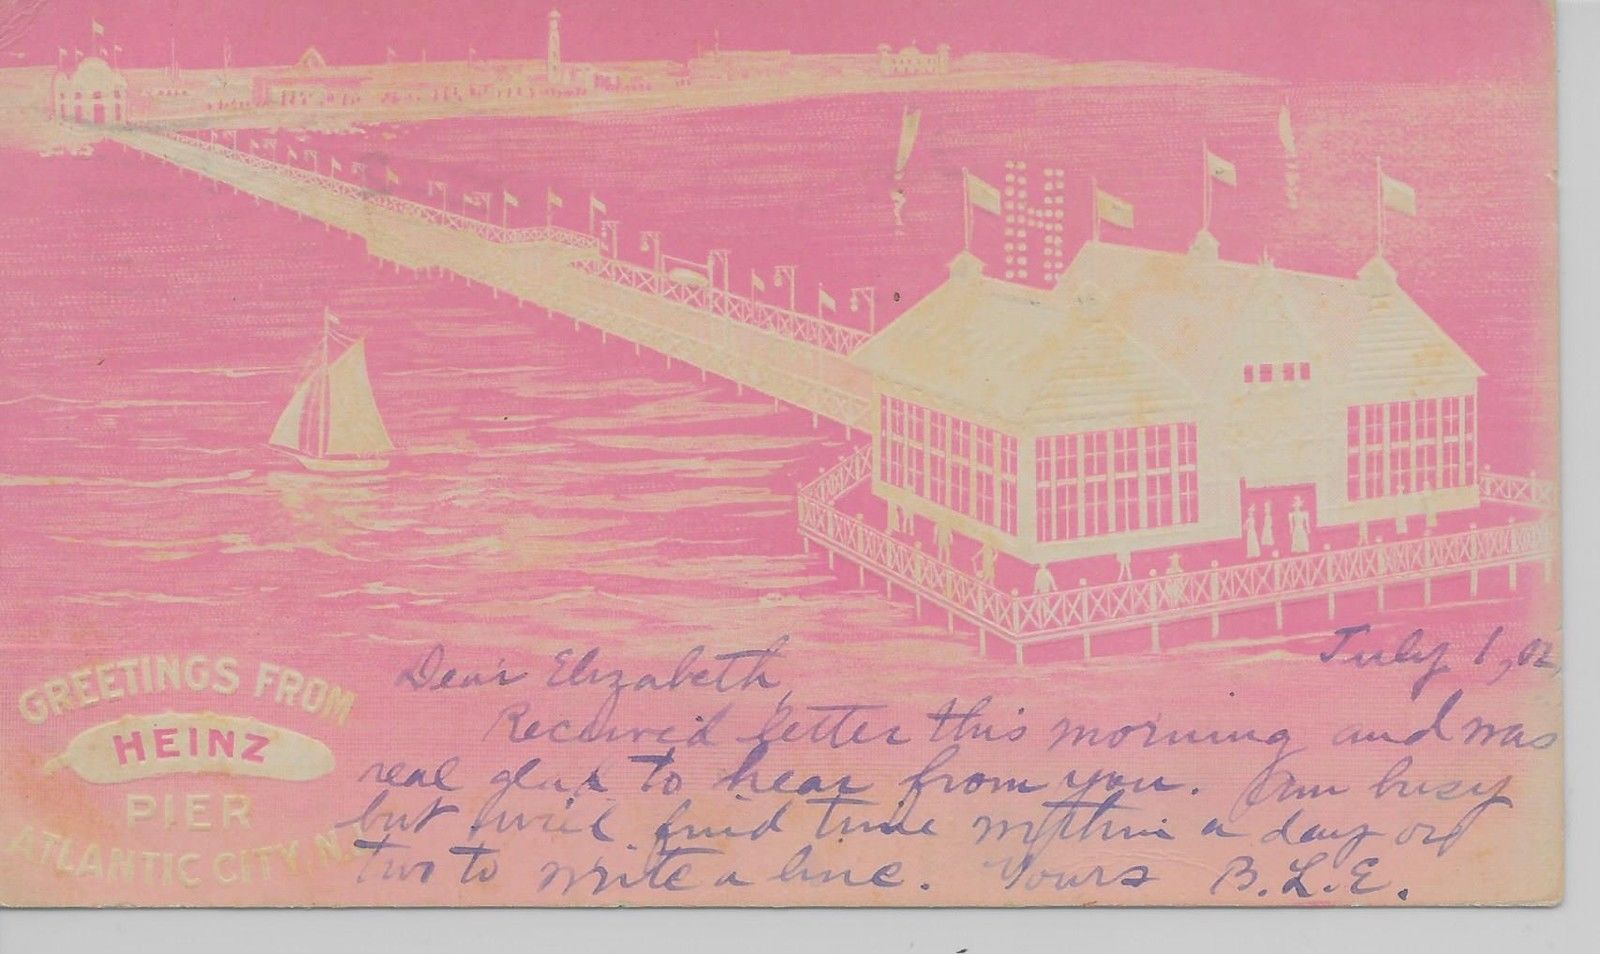 H
GREETINGS FROM
HEINZ
PIER
ATLANTIC CITY, N.
July 1, 02,
Dear Elizabeth,
Received letter this morning and was
real glad to hear from you. Am busy
but will find time within a day or
two to write a line. Yours B.L.E.